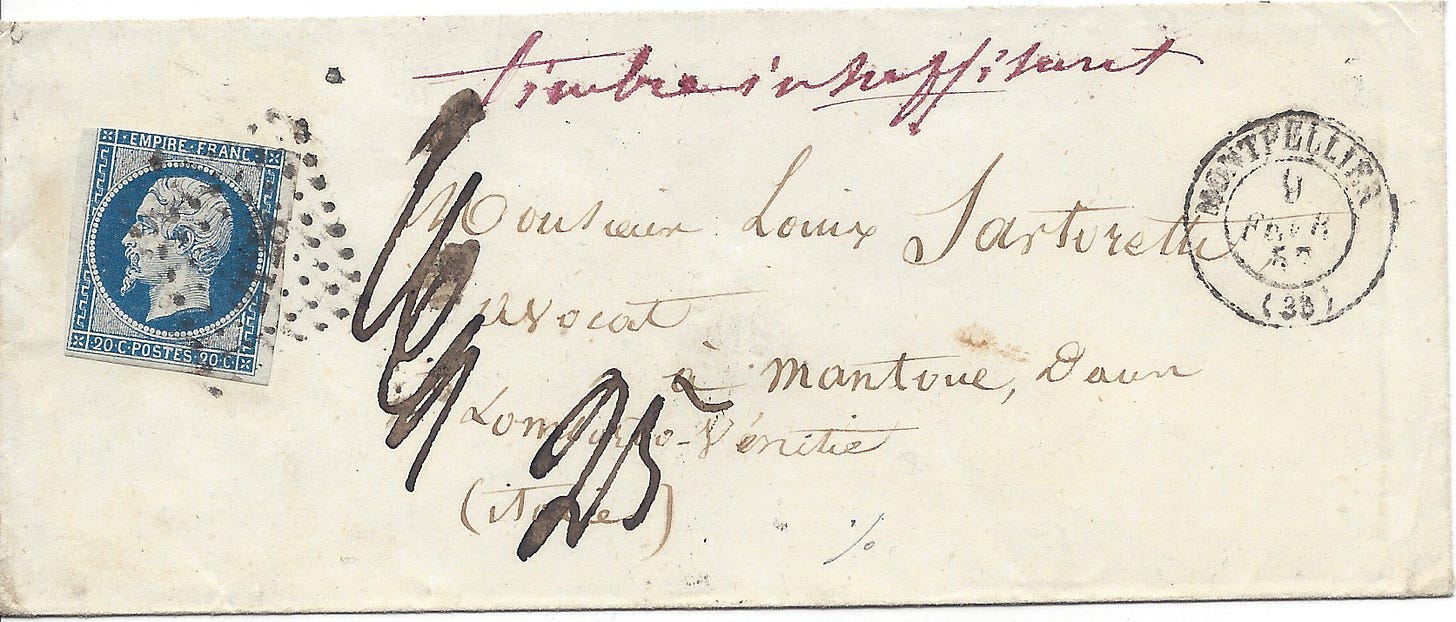 timbre insuffisant
EMPIRE FRANC
20·C·POSTES·20·C·
Monsieur Louis Sartoretti
avocat
à Mantoue, Dann
Lombardo-Vénitie
(italie)
25
MONTPELLIER
9
FEVR
(33)